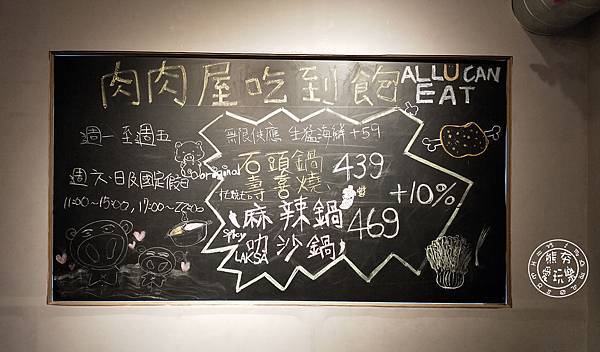 肉肉屋吃到飽 ALL U CAN EAT
週一至週五
週六、日及國定假日
11:00~15:00, 17:00~22:00
無限供應 生猛海鮮 +59
original
石頭鍋 439
壽喜燒
+10%
麻辣鍋 469
Spicy
叻沙鍋
LAKSA
熊夯愛玩樂